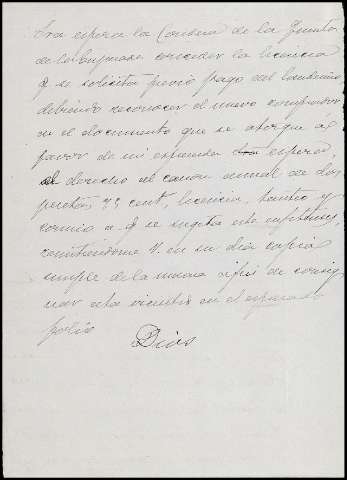 Sra esposa la Condesa de la Quinta
de la Enjarada conceder la licencia
q se solicita previo pago del laudemio
debiendo reconocer el nuevo comprador
en el documento que se otorgue á
favor de mi espresada esposa,
el derecho al canon anual de dos
pesetas, 75 cent, licencia, tanteo y
comiso a q se sugeta esta enfiteusis,
remitiendome V. en su dia copia
simple de la misma á fin de consig
nar esta vicisitud en el espresado
folio
Dios